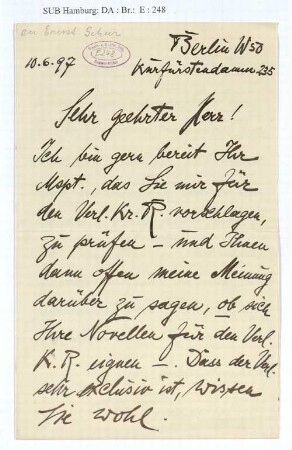 SUB Hamburg: DA : Br.: E : 248
an Ernst Schur
Berlin W 50
10.6.97 Kurfürstendamm 235
Sehr geehrter Herr!
Ich bin gern bereit Ihr
Mspt., das Sie mir für
den Verl. Kr. R. vorschlagen,
zu prüfen – und Ihnen
dann offen meine Meinung
darüber zu sagen, ob sich
Ihre Novellen für den Verl.
K. R. eignen –. Dass der Verl.
sehr exclusiv ist, wissen
Sie wohl.